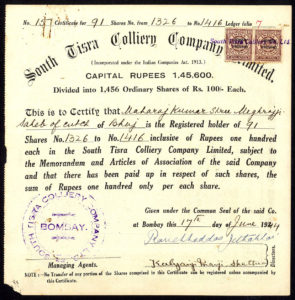 No. 157 Certificate for 91 Shares No. from 1326 to 1416 Ledger folio 7
South Tisra Colliery Company Limited.
(Incorporated under the Indian Companies Act, 1913.)
CAPITAL RUPEES 1,45,600.
Divided into 1,456 Ordinary Shares of Rs. 100/- Each.
This is to Certify that Maharaj Kumar Shree Meghraji
Saheb of Cutch of Bhuj is the Registered holder of 91
Shares No. 1326 to 1416 inclusive of Rupees one hundred
each in the South Tisra Colliery Company Limited, subject to
the Memorandum and Articles of Association of the said Company
and that there has been paid up in respect of such shares, the
sum of Rupees one hundred only per each share.
Given under the Common Seal of the said Co.
at Bombay this 17th day of June
SOUTH TISRA COLLIERY COMPANY
BOMBAY.
Directors.
Managing Agents.
NOTE:—No Transfer of any portion of the Shares comprised in this Certificate can be registered unless accompanied by
this Certificate.